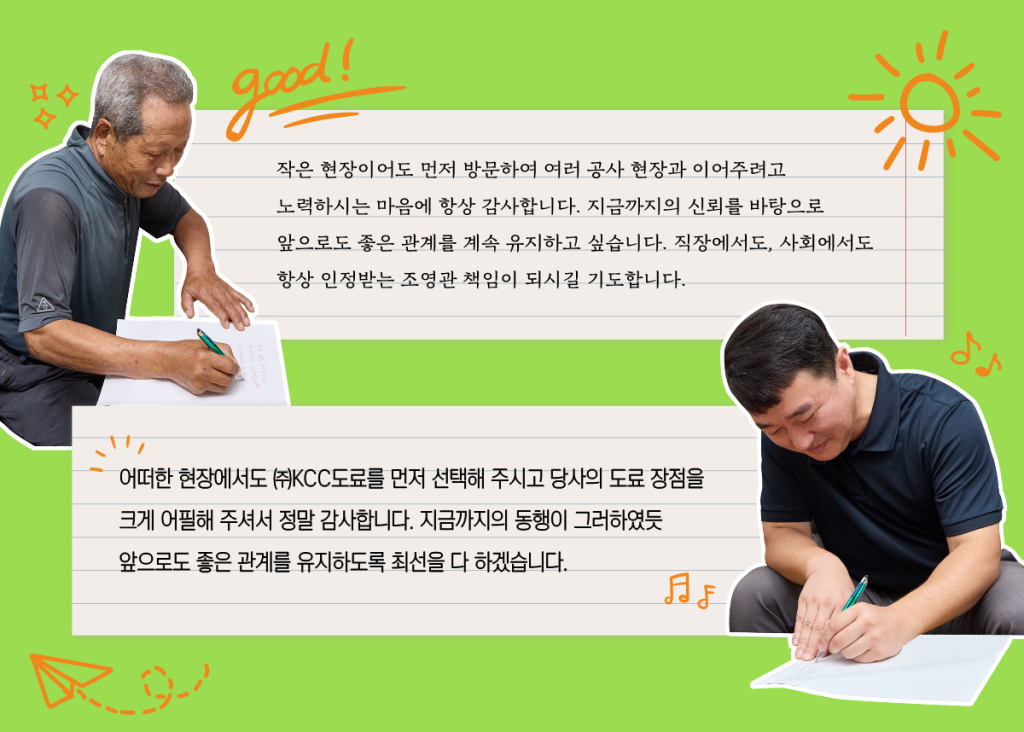 good!
작은 현장이어도 먼저 방문하여 여러 공사 현장과 이어주려고
노력하시는 마음에 항상 감사합니다. 지금까지의 신뢰를 바탕으로
앞으로도 좋은 관계를 계속 유지하고 싶습니다. 직장에서도, 사회에서도
항상 인정받는 조영관 책임이 되시길 기도합니다.
어떠한 현장에서도 ㈜KCC도료를 먼저 선택해 주시고 당사의 도료 장점을
크게 어필해 주셔서 정말 감사합니다. 지금까지의 동행이 그러하였듯
앞으로도 좋은 관계를 유지하도록 최선을 다 하겠습니다.